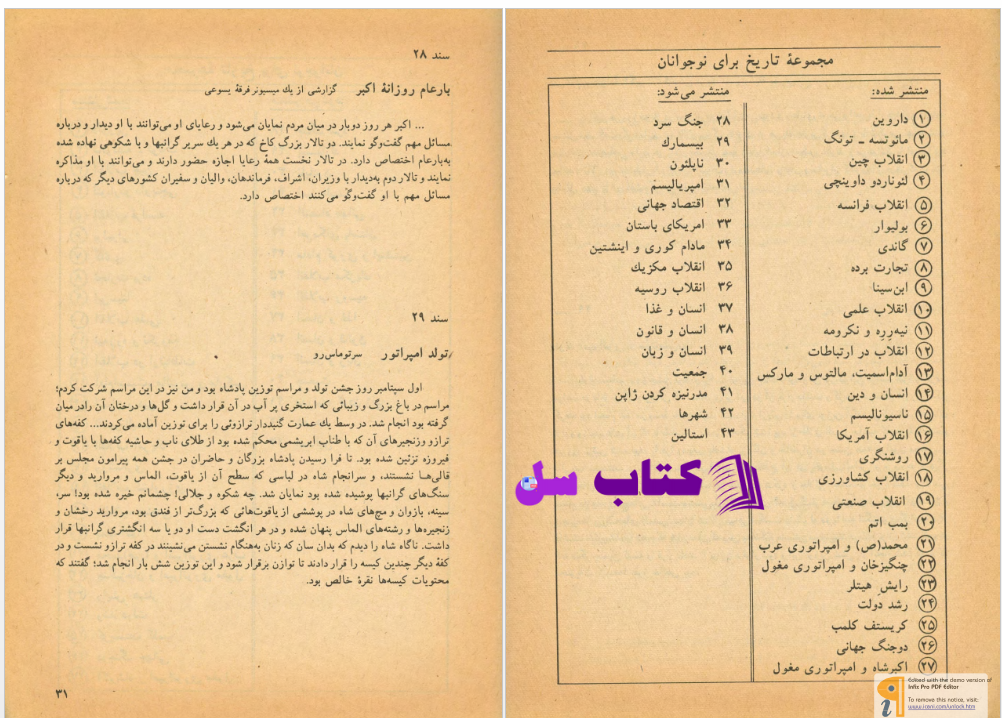 سند ۲۸
بارعام روزانهٔ اکبر گزارشی از یك میسیونر فرقهٔ یسوعی
... اکبر هر روز دوبار در میان مردم نمایان می‌شود و رعایای او می‌توانند با او دیدار و درباره
مسائل مهم گفت‌وگو نمایند. دو تالار بزرگ کاخ که در هر یك سریر گرانبها و با شکوهی نهاده شده
به‌بارعام اختصاص دارد. در تالار نخست همهٔ رعایا اجازه حضور دارند و می‌توانند با او مذاکره
نمایند و تالار دوم به‌دیدار با وزیران، اشراف، فرماندهان، والیان و سفیران کشورهای دیگر که درباره
مسائل مهم با او گفت‌وگو می‌کنند اختصاص دارد.
سند ۲۹
تولد امپراتور سرتوماس‌رو
اول سپتامبر روز جشن تولد و مراسم توزین پادشاه بود و من نیز در این مراسم شرکت کردم؛
مراسم در باغ بزرگ و زیبائی که استخری پر آب در آن قرار داشت و گل‌ها و درختان آن رادر میان
گرفته بود انجام شد. در وسط یك عمارت گنبددار ترازوئی را برای توزین آماده می‌کردند... کفه‌های
ترازو وزنجیرهای آن که با طناب ابریشمی محکم شده بود از طلای ناب و حاشیه کفه‌ها با یاقوت و
فیروزه تزئین شده بود. تا فرا رسیدن پادشاه بزرگان و حاضران در جشن همه پیرامون مجلس بر
قالی‌هـا نشستند، و سرانجام شاه در لباسی که سطح آن از یاقوت، الماس و مروارید و دیگر
سنگ‌های گرانبها پوشیده شده بود نمایان شد. چه شکوه و جلالی! چشمانم خیره شده بود! سر،
سینه، بازوان و مچ‌های شاه در پوششی از یاقوت‌هائی که بزرگ‌تر از فندق بود، مروارید رخشان و
زنجیره‌ها و رشته‌های الماس پنهان شده و در هر انگشت دست او دو یا سه انگشتری گرانبها قرار
داشت. ناگاه شاه را دیدم که بدان سان که زنان به‌هنگام نشستن می‌نشینند در کفه ترازو نشست و در
کفهٔ دیگر چندین کیسه را قرار دادند تا توازن برقرار شود و این توزین شش بار انجام شد؛ گفتند که
محتویات کیسه‌ها نقرهٔ خالص بود.
۳۱
مجموعهٔ تاریخ برای نوجوانان
منتشر شده:
۱ داروین
۲ مائوتسه ـ تونگ
۳ انقلاب چین
۴ لئوناردو داوینچی
۵ انقلاب فرانسه
۶ بولیوار
۷ گاندی
۸ تجارت برده
۹ ابن‌سینا
۱۰ انقلاب علمی
۱۱ نیه‌رِره و نکرومه
۱۲ انقلاب در ارتباطات
۱۳ آدام‌اسمیت، مالتوس و مارکس
۱۴ انسان و دین
۱۵ ناسیونالیسم
۱۶ انقلاب آمریکا
۱۷ روشنگری
۱۸ انقلاب کشاورزی
۱۹ انقلاب صنعتی
۲۰ بمب اتم
۲۱ محمد(ص) و امپراتوری عرب
۲۲ چنگیزخان و امپراتوری مغول
۲۳ رایش هیتلر
۲۴ رشد دولت
۲۵ کریستف کلمب
۲۶ دوجنگ جهانی
۲۷ اکبرشاه و امپراتوری مغول
منتشر می‌شود:
۲۸ جنگ سرد
۲۹ بیسمارك
۳۰ ناپلئون
۳۱ امپریالیسم
۳۲ اقتصاد جهانی
۳۳ امریکای باستان
۳۴ مادام کوری و اینشتین
۳۵ انقلاب مکزیك
۳۶ انقلاب روسیه
۳۷ انسان و غذا
۳۸ انسان و قانون
۳۹ انسان و زبان
۴۰ جمعیت
۴۱ مدرنیزه کردن ژاپن
۴۲ شهرها
۴۳ استالین
کتاب سل
Edited with the demo version of
Infix Pro PDF Editor
To remove this notice, visit:
www.iceni.com/unlock.htm